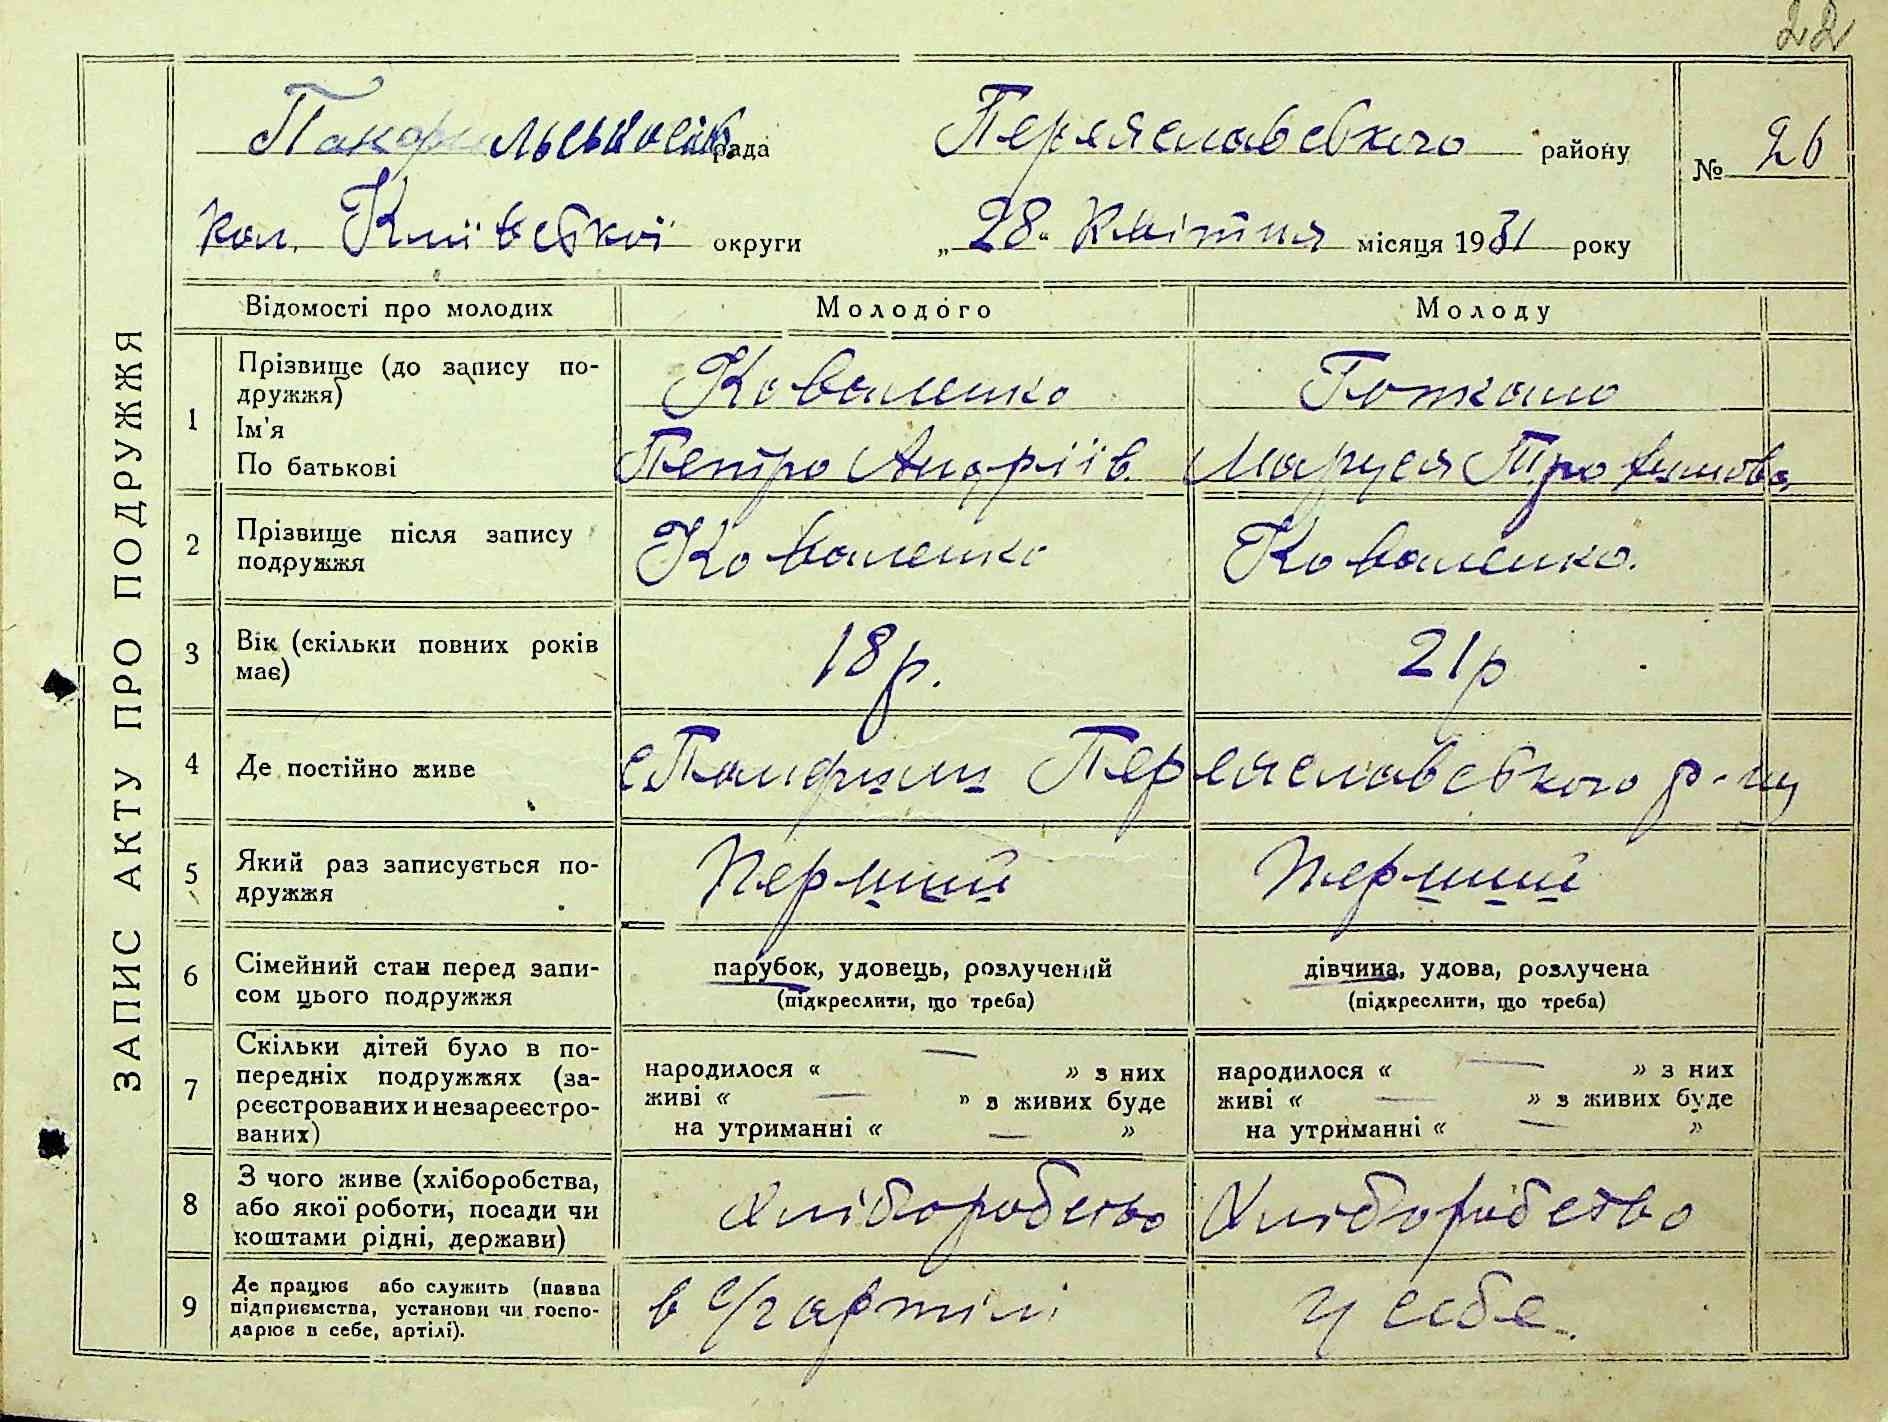 22
Панфильська сіль рада Переяславського району № 26
кол. Київської округи „28" Квітня місяця 1931 року
ЗАПИС АКТУ ПРО ПОДРУЖЖЯ
Відомості про молодих Молодого Молоду
1 Прізвище (до запису по-
дружжя) Коваленко
Ім'я
По батькові Петро Андріїв. Маруся Трохимова
2 Прізвище після запису
подружжя Коваленко Коваленко.
3 Вік (скільки повних років
має) 18 р. 21 р
4 Де постійно живе с Панфили Переяславського р-ну
5 Який раз записується по-
дружжя Перший Перший
6 Сімейний стан перед запи-
сом цього подружжя
парубок, удовець, розлучений
(підкреслити, що треба)
дівчина, удова, розлучена
(підкреслити, що треба)
7 Скільки дітей було в по-
передніх подружжях (за-
реєстрованих и незареєстро-
ваних)
народилося « — » з них
живі « — » з живих буде
на утриманні « — »
народилося « — » з них
живі « — » з живих буде
на утриманні « — »
8 З чого живе (хліборобства,
або якої роботи, посади чи
коштами рідні, держави) Хліборобство Хліборобство
9 Де працює або служить (назва
підприємства, установи чи госпо-
дарює в себе, артілі). в с/г артілі у себе.